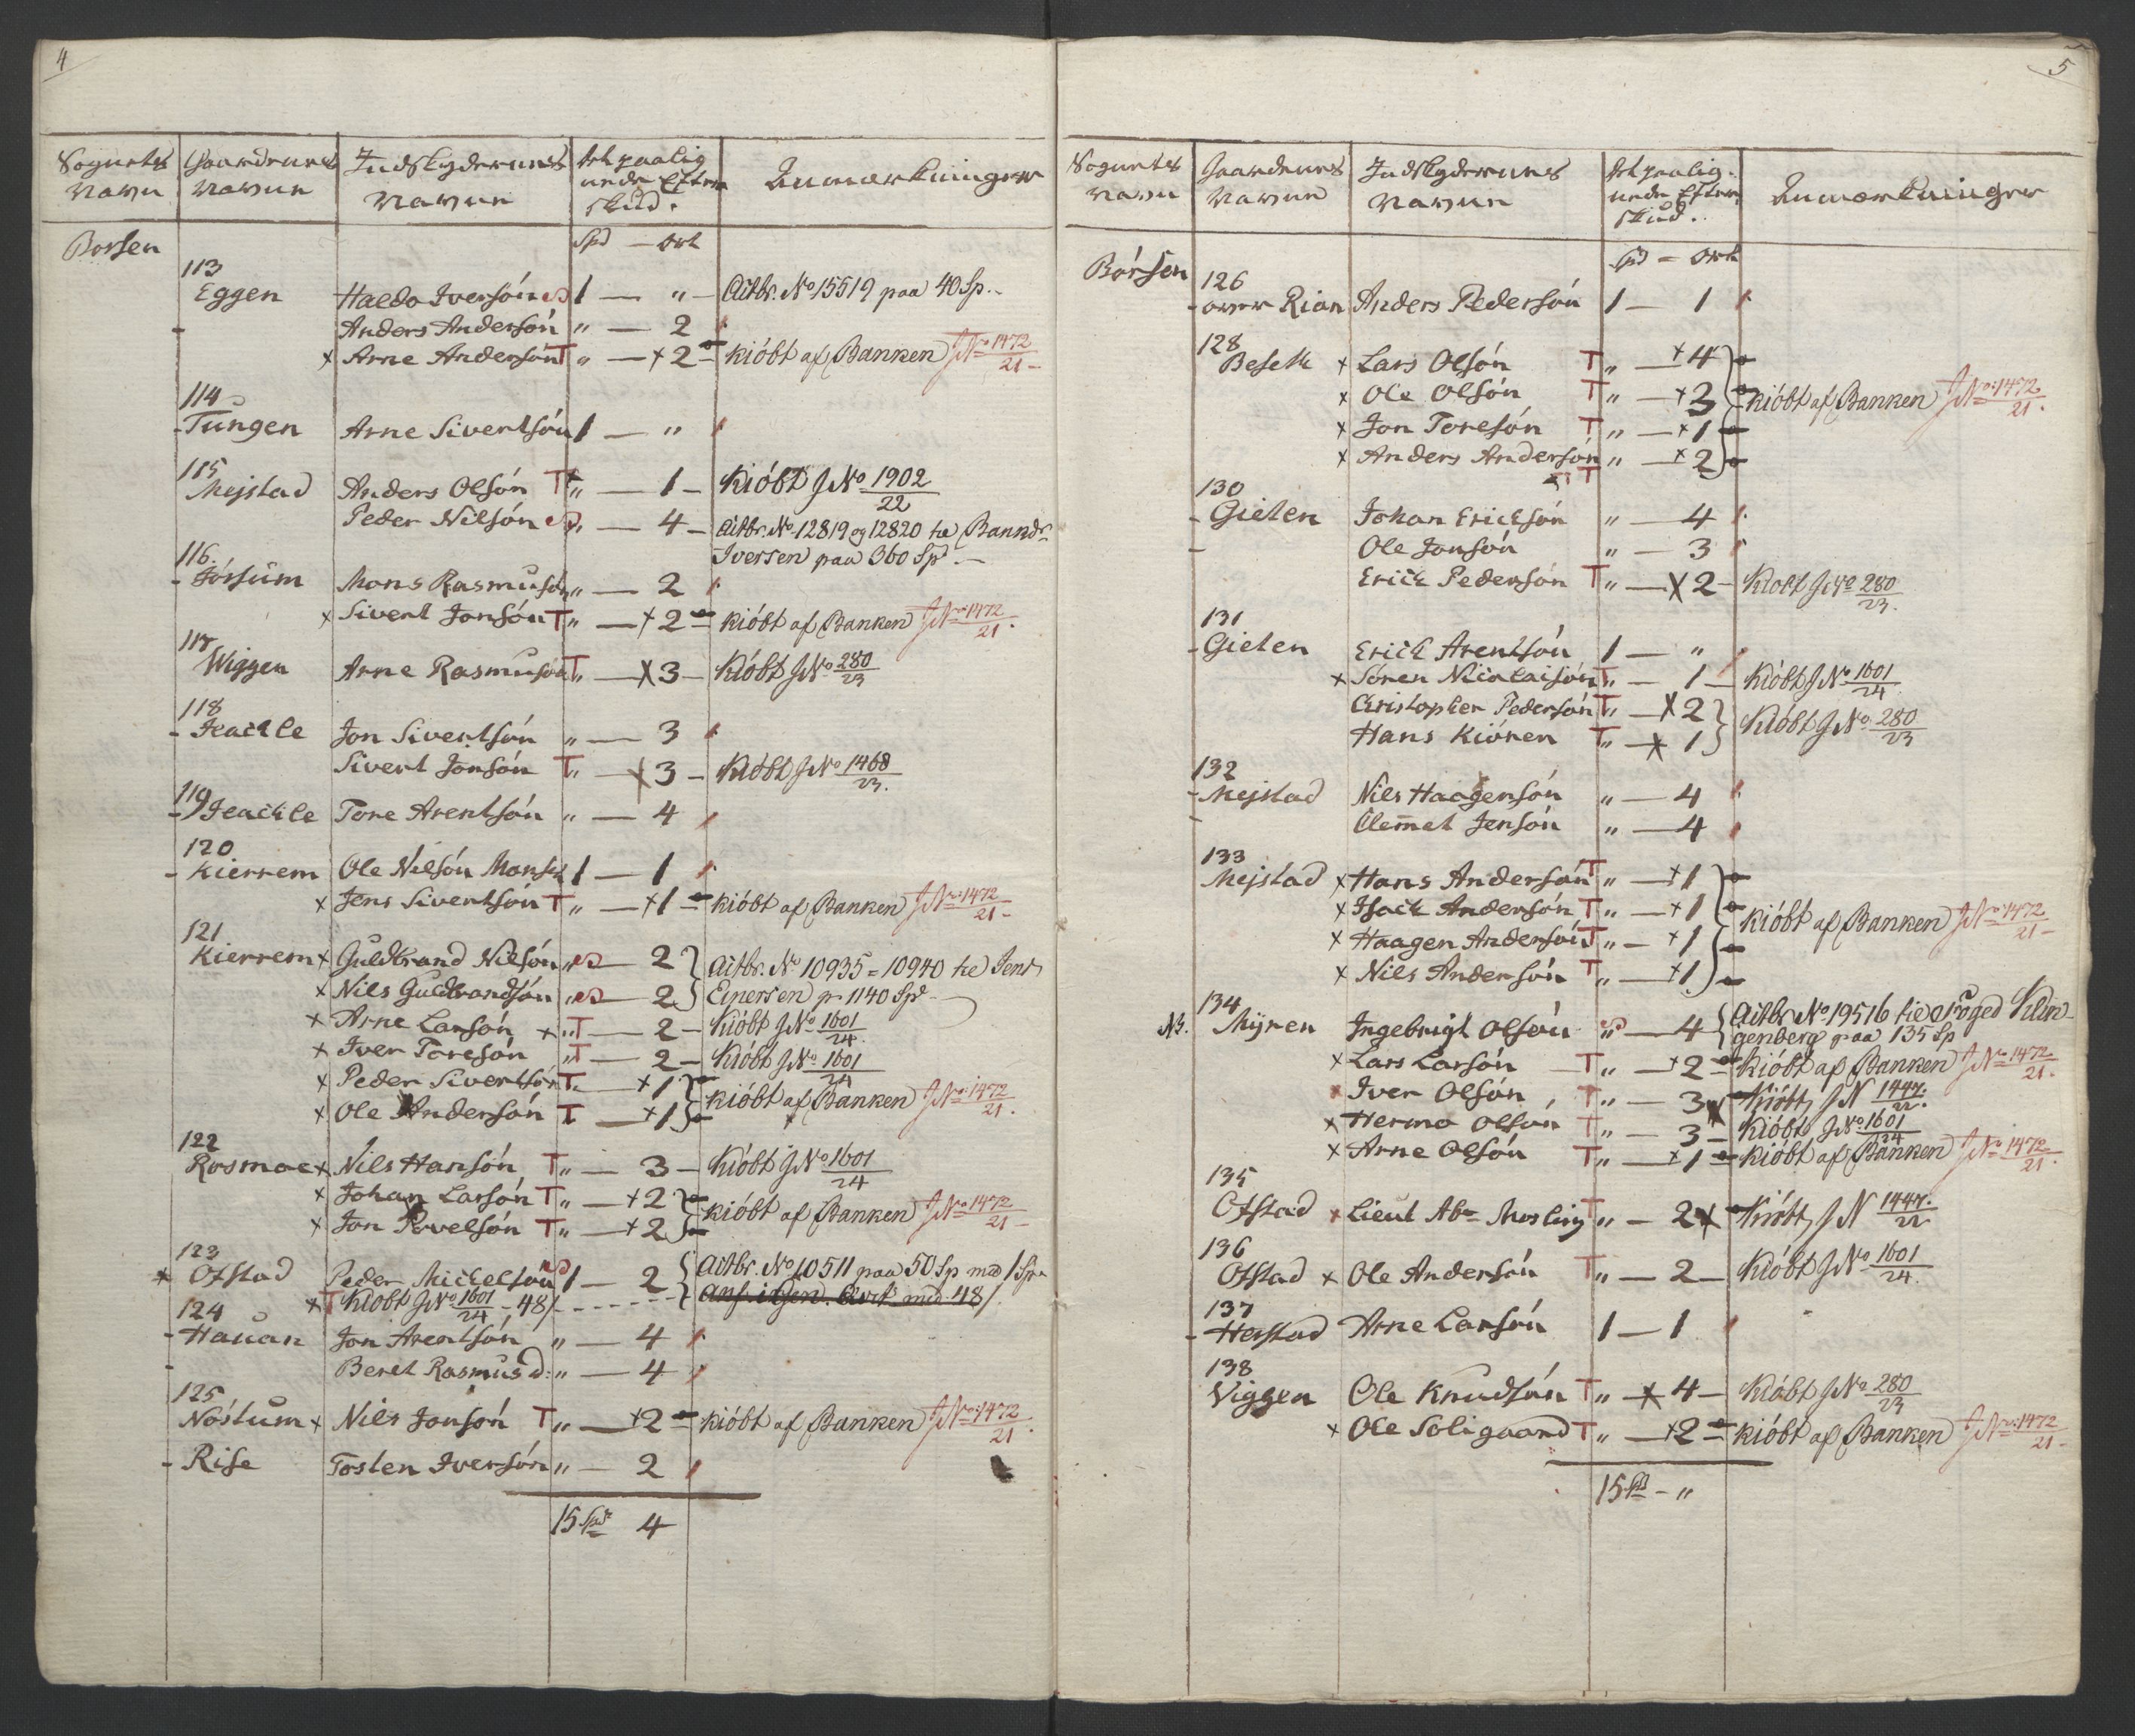 4
Sognets Navn | Gaardenes Navne | Indskydernes Navne | under Efter skud. | Anmærkninger
Borsen | Spd — Ort
113
Eggen | Haldo Iversón | 1 — " — | Actbr. No 15519 paa 40 Sp.
- | Anders Andersón | " — 2
x Arne Andersón T | " — x 2 | kióbt af Banken J No 1472/21
114
- Tungen | Arne Sivertsón | 1 — "
115
Mejstad | Anders Olsón T | " — 1 — | Kióbt J No 1902/22
Peder Nilsón | " — 4 — | Actbr. No 12819 og 12820 til
Iversen paa 360 Spd
116.
- Jórsum | Mons Rasmusón | " — 2
x Sivert Jonsón T | " — x 2 | kióbt af Banken J No 1472/21.
117
Wiggen | Arne Rasmusón T | " — x 3 — | Kióbt J No 280/23
118
- | Jon Sivertsón | " — 3
Sivert Jonsón T | " — x 3 — | Kióbt J No 1468/23.
119
- | Tore Arentsón | " — 4
120
- Kierrem | Ole Nilsón | 1 — 1
x Jens Sivertsón T | " — x 1 | kióbt af Banken J No 1472/21
121
Kierrem | x Guldbrand Nilsón | " — 2 } | Actbr. No 10935 = 10940 til Jens
x Nils Guldbrandsón | " — 2 } | Einersen p. 1140 Spd
x Arne Larsón x | " T — 2 — | Kióbt J No 1601/24.
x Iver Toresón | " T — 2 — | Kióbt J No 1601/24
x Peder Sivertsón T | — x 1 } | kióbt af Banken J No 1472/21.
x Ole Andersón T | — x 1 }
122
Rosmoe | x Nils Hansón T | " — 3 — | Kióbt J No 1601/24
x Johan Larsón T | " — x 2 } | kióbt af Banken J No 1472/21
x Jon Povelsón T | " — x 2 }
123
x Ofstad | Peder Michelsón | 1 — 2 { | Actbr. No 10511 paa 50 Sp med 1 Sp
x T Kióbt J No 1601/24 - 48 /
124
- Hauan | Jon Arentsón | " — 4
- | Beret Rasmusd: | " — 4
125
Nóstum | x Nils Jonsón T | " — x 2 | kióbt af Banken J No 1472/21.
- Rise | Tosten Iversón | " — 2
15 Spd 4
5
Sognets Navn | Gaardenes Navne | Indskydernes Navne | under Efter skud. | Anmærkninger
Bórsen | Spd — Ort
126
- over Rian | Anders Pedersón | 1 — 1
128
Beseth | x Lars Olsón T | " — x 4 }
x Ole Olsón T | " — x 3 } | kióbt af Banken J No 1472/21.
x Jon Toresón T | " — x 1 }
x Anders Andersón T | " — x 2 }
130
- Gielen | Johan Ericksón | " — 4
- | Ole Jonsón | " — 3
Erick Pedersón T | " — x 2 — | Kiobt J No 280/23.
131
- Gielen | Erick Arentsón | 1 — "
x Sóren Nicolaisón T | " — 1 — | Kióbt J No 1601/24
Christopher Pedersón T | " — x 2 } | Kióbt J No 280/23
Hans Kióren T | " — x 1 }
132
- Mejstad | Nils Haagensón | " — 4
- | Clemet Jensón | " — 4
133
Mejstad | x Hans Andersón T | " — x 1 }
x Isach Andersón T | " — x 1 } | kióbt af Banken J No 1472/21
x Haagen Andersón T | " — x 1 }
x Nils Andersón T | " — x 1 }
134
NB. Mÿren | Ingebrigt Olsón | " — 4 { | Actbr No 19516 til Klin-
genberg paa 135 Sp
x Lars Larsón T | " — x 2 | kióbt af Banken J No 1472/21.
x Iver Olsón T | " — 3 x | Kióbt J N 1447./22
x Hermo Olsón T | " — 3 — | Kióbt J No 1601/24
x Arne Olsón T | " — x 1 | kióbt af Banken J No 1472/21.
135
Ofstad | x Lieut Abr Mosling T | " — 2 x | Kióbt J N 1447./22
136
Ofstad | x Ole Andersón T | " — 2 — | Kióbt J No 1601/24.
137
- Herstad | Arne Larsón | 1 — 1
138
Viggen | Ole Knudsón T | " — x 4 — | Kióbt J No 280/23
x Ole Soligaard T | " — x 2 | kióbt af Banken J No 1472/21
15 Spd — "